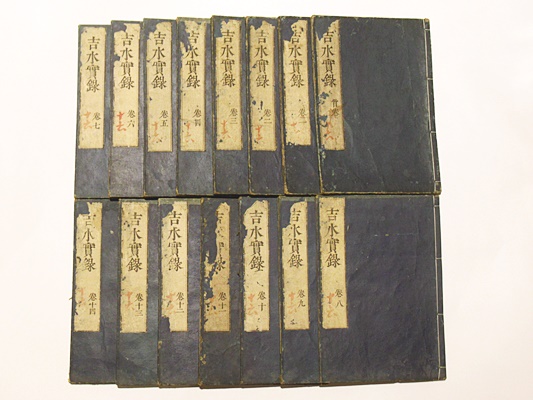 吉水實錄 首卷
吉水實錄 卷一
吉水實錄 卷二
吉水實錄 卷三
吉水實錄 卷四
吉水實錄 卷五
吉水實錄 卷六
吉水實錄 卷七
吉水實錄 卷八
吉水實錄 卷九
吉水實錄 卷十
實錄 卷十一
吉水實錄 卷十二
吉水實錄 卷十三
吉水實錄 卷十四